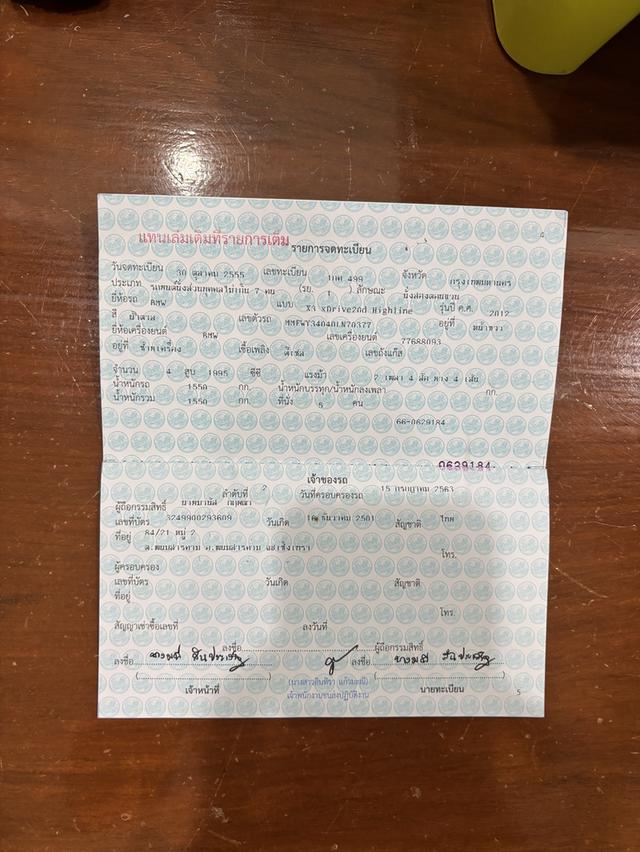 แทนเล่มเดิมที่รายการเดิม
รายการจดทะเบียน
วันจดทะเบียน 30 ตุลาคม 2555 เลขทะเบียน 499 จังหวัด กรุงเทพมหานคร
ประเภท รถยนต์นั่งส่วนบุคคลไม่เกิน 7 คน (รย. 1 ) ลักษณะ นั่งสองตอนท้าย
ยี่ห้อรถ BMW แบบ X3 xDrive20d Highline รุ่นปี ค.ศ. 2012
สี เลขตัวรถ อยู่ที่ หน้าขวา
ยี่ห้อเครื่องยนต์ BMW เลขเครื่องยนต์ 77688093
อยู่ที่ ซ้ายเครื่อง เชื้อเพลิง ดีเซล เลขถังแก๊ส
จำนวน 4 สูบ 1995 ซีซี แรงม้า 2 เพลา 4 ล้อ ยาง 4 เส้น
น้ำหนักรถ 1550 กก. น้ำหนักบรรทุก/น้ำหนักลงเพลา กก.
น้ำหนักรวม 1550 กก. ที่นั่ง 5 คน
66-0629184
0629184
เจ้าของรถ
ลำดับที่ 2 วันที่ครอบครองรถ 15 กรกฎาคม 2563
ผู้ถือกรรมสิทธิ์
เลขที่บัตร 3249900293609 วันเกิด ธันวาคม 2501 สัญชาติ ไทย
ที่อยู่ 84/21 หมู่ 2
ต.พนมสารคาม อ.พนมสารคาม ฉะเชิงเทรา โทร.
ผู้ครอบครอง
เลขที่บัตร วันเกิด สัญชาติ
ที่อยู่
โทร.
สัญญาเช่าซื้อเลขที่ ลงวันที่
ลงชื่อ ผู้ถือกรรมสิทธิ์
ลงชื่อ ลงชื่อ
เจ้าหน้าที่ นายทะเบียน
เจ้าพนักงานขนส่งปฏิบัติงาน
5